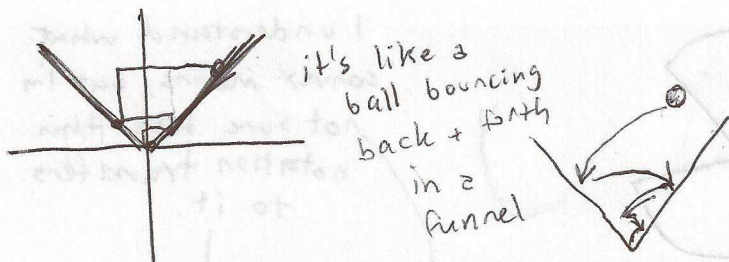 it's like a
ball bouncing
back + forth
in a
funnel